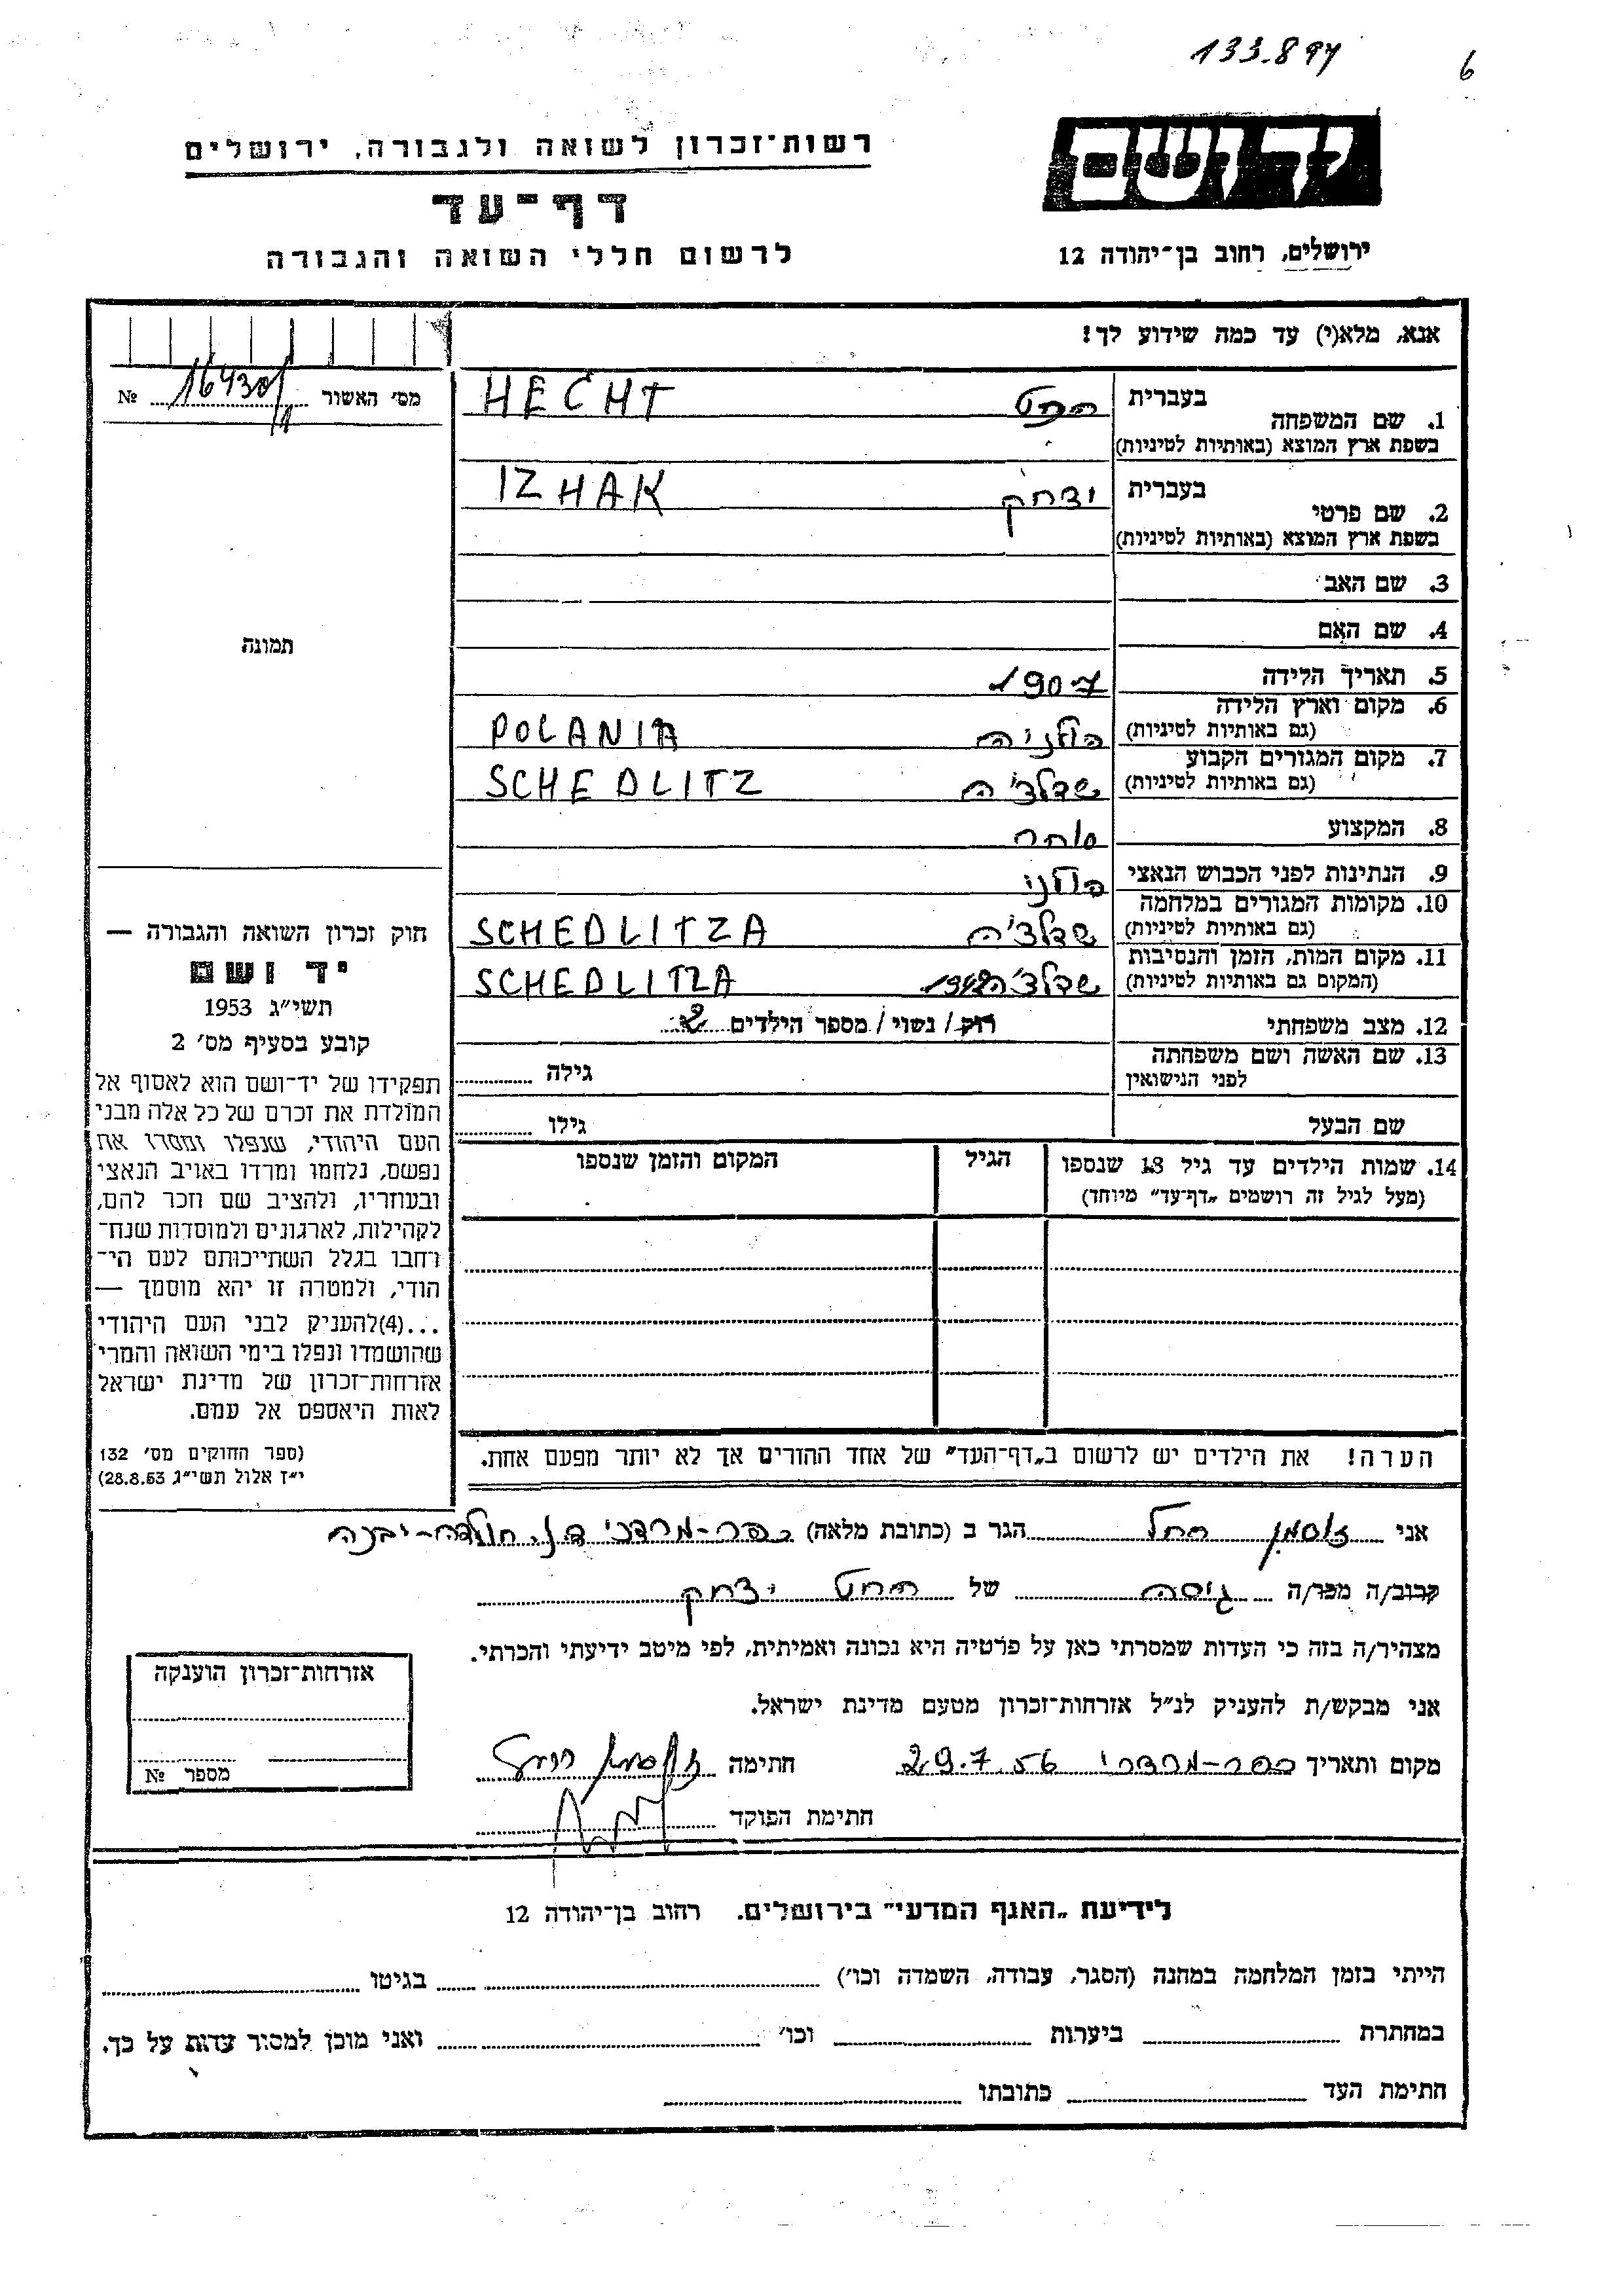 133.894
6
יד ושם
רשות־זכרון לשואה ולגבורה, ירושלים
דף־עד
לרשום חללי השואה והגבורה
ירושלים, רחוב בן־יהודה 12
אנא, מלא(י) עד כמה שידוע לך!
מס׳ האשור 16430/ №
1. שם המשפחה
בעברית
הכט HECHT
בשפת ארץ המוצא (באותיות לטיניות)
2. שם פרטי
בעברית
יצחק IZHAK
בשפת ארץ המוצא (באותיות לטיניות)
3. שם האב
4. שם האם
תמונה
5. תאריך הלידה 1907
6. מקום וארץ הלידה
(גם באותיות לטיניות) פולניה POLANIA
7. מקום המגורים הקבוע
(גם באותיות לטיניות) שדלציה SCHEDLITZ
8. המקצוע סוחר
9. הנתינות לפני הכבוש הנאצי פולני
10. מקומות המגורים במלחמה
(גם באותיות לטיניות) שדלציה SCHEDLITZA
11. מקום המות, הזמן והנסיבות
(המקום גם באותיות לטיניות) שדלציה 1942 SCHEDLITZA
12. מצב משפחתי רוק / נשוי / מספר הילדים 2
13. שם האשה ושם משפחתה
לפני הנישואין גילה
שם הבעל גילו
14. שמות הילדים עד גיל 18 שנספו הגיל המקום והזמן שנספו
(מעל לגיל זה רושמים „דף־עד״ מיוחד)
חוק זכרון השואה והגבורה —
יד ושם
תשי״ג 1953
קובע בסעיף מס׳ 2
תפקידו של יד־ושם הוא לאסוף אל
המולדת את זכרם של כל אלה מבני
העם היהודי, שנפלו ומסרו את
נפשם, נלחמו ומרדו באויב הנאצי
ובעוזריו, ולהציב שם וזכר להם,
לקהילות, לארגונים ולמוסדות שנח־
רחבו בגלל השתייכותם לעם הי־
הודי, ולמטרה זו יהא מוסמך —
...(4)להעניק לבני העם היהודי
שהושמדו ונפלו בימי השואה והמרי
אזרחות־זכרון של מדינת ישראל
לאות היאספם אל עמם.
(ספר החוקים מס׳ 132
י״ז אלול תשי״ג 28.8.53)
הערה! את הילדים יש לרשום ב„דף־העד״ של אחד ההורים אך לא יותר מפעם אחת.
אני זוסמן רחל הגר ב (כתובת מלאה) כפר-מרדכי ד.נ. חולדה-יבנה
קרוב/ה מכר/ה גיסה של הכט יצחק
מצהיר/ה בזה כי העדות שמסרתי כאן על פרטיה היא נכונה ואמיתית, לפי מיטב ידיעתי והכרתי.
אני מבקש/ת להעניק לנ״ל אזרחות־זכרון מטעם מדינת ישראל.
מקום ותאריך כפר-מרדכי 29.7.56 חתימה זוסמן רחל
חתימת הפוקד
אזרחות־זכרון הוענקה
מספר №
לידיעת „האגף המדעי״ בירושלים. רחוב בן־יהודה 12
הייתי בזמן המלחמה במחנה (הסגר, עבודה, השמדה וכו׳) בגיטו
במחתרת ביערות וכו׳ ואני מוכן למסור עדות על כך.
חתימת העד כתובתו